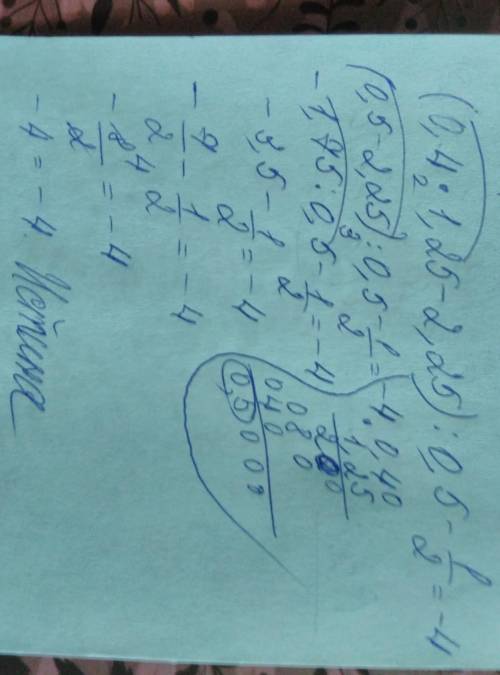 (0,4 · 1,25 - 2,25) : 0,5 - 1/2 = -4
(0,5 - 2,25) : 0,5 - 1/2 = -4
-1,75 : 0,5 - 1/2 = -4
-3,5 - 1/2 = -4
-7/2 - 1/2 = -4
-8/2 = -4
-4 = -4. Истина
0,40
1,25
200
080
040
0,5000